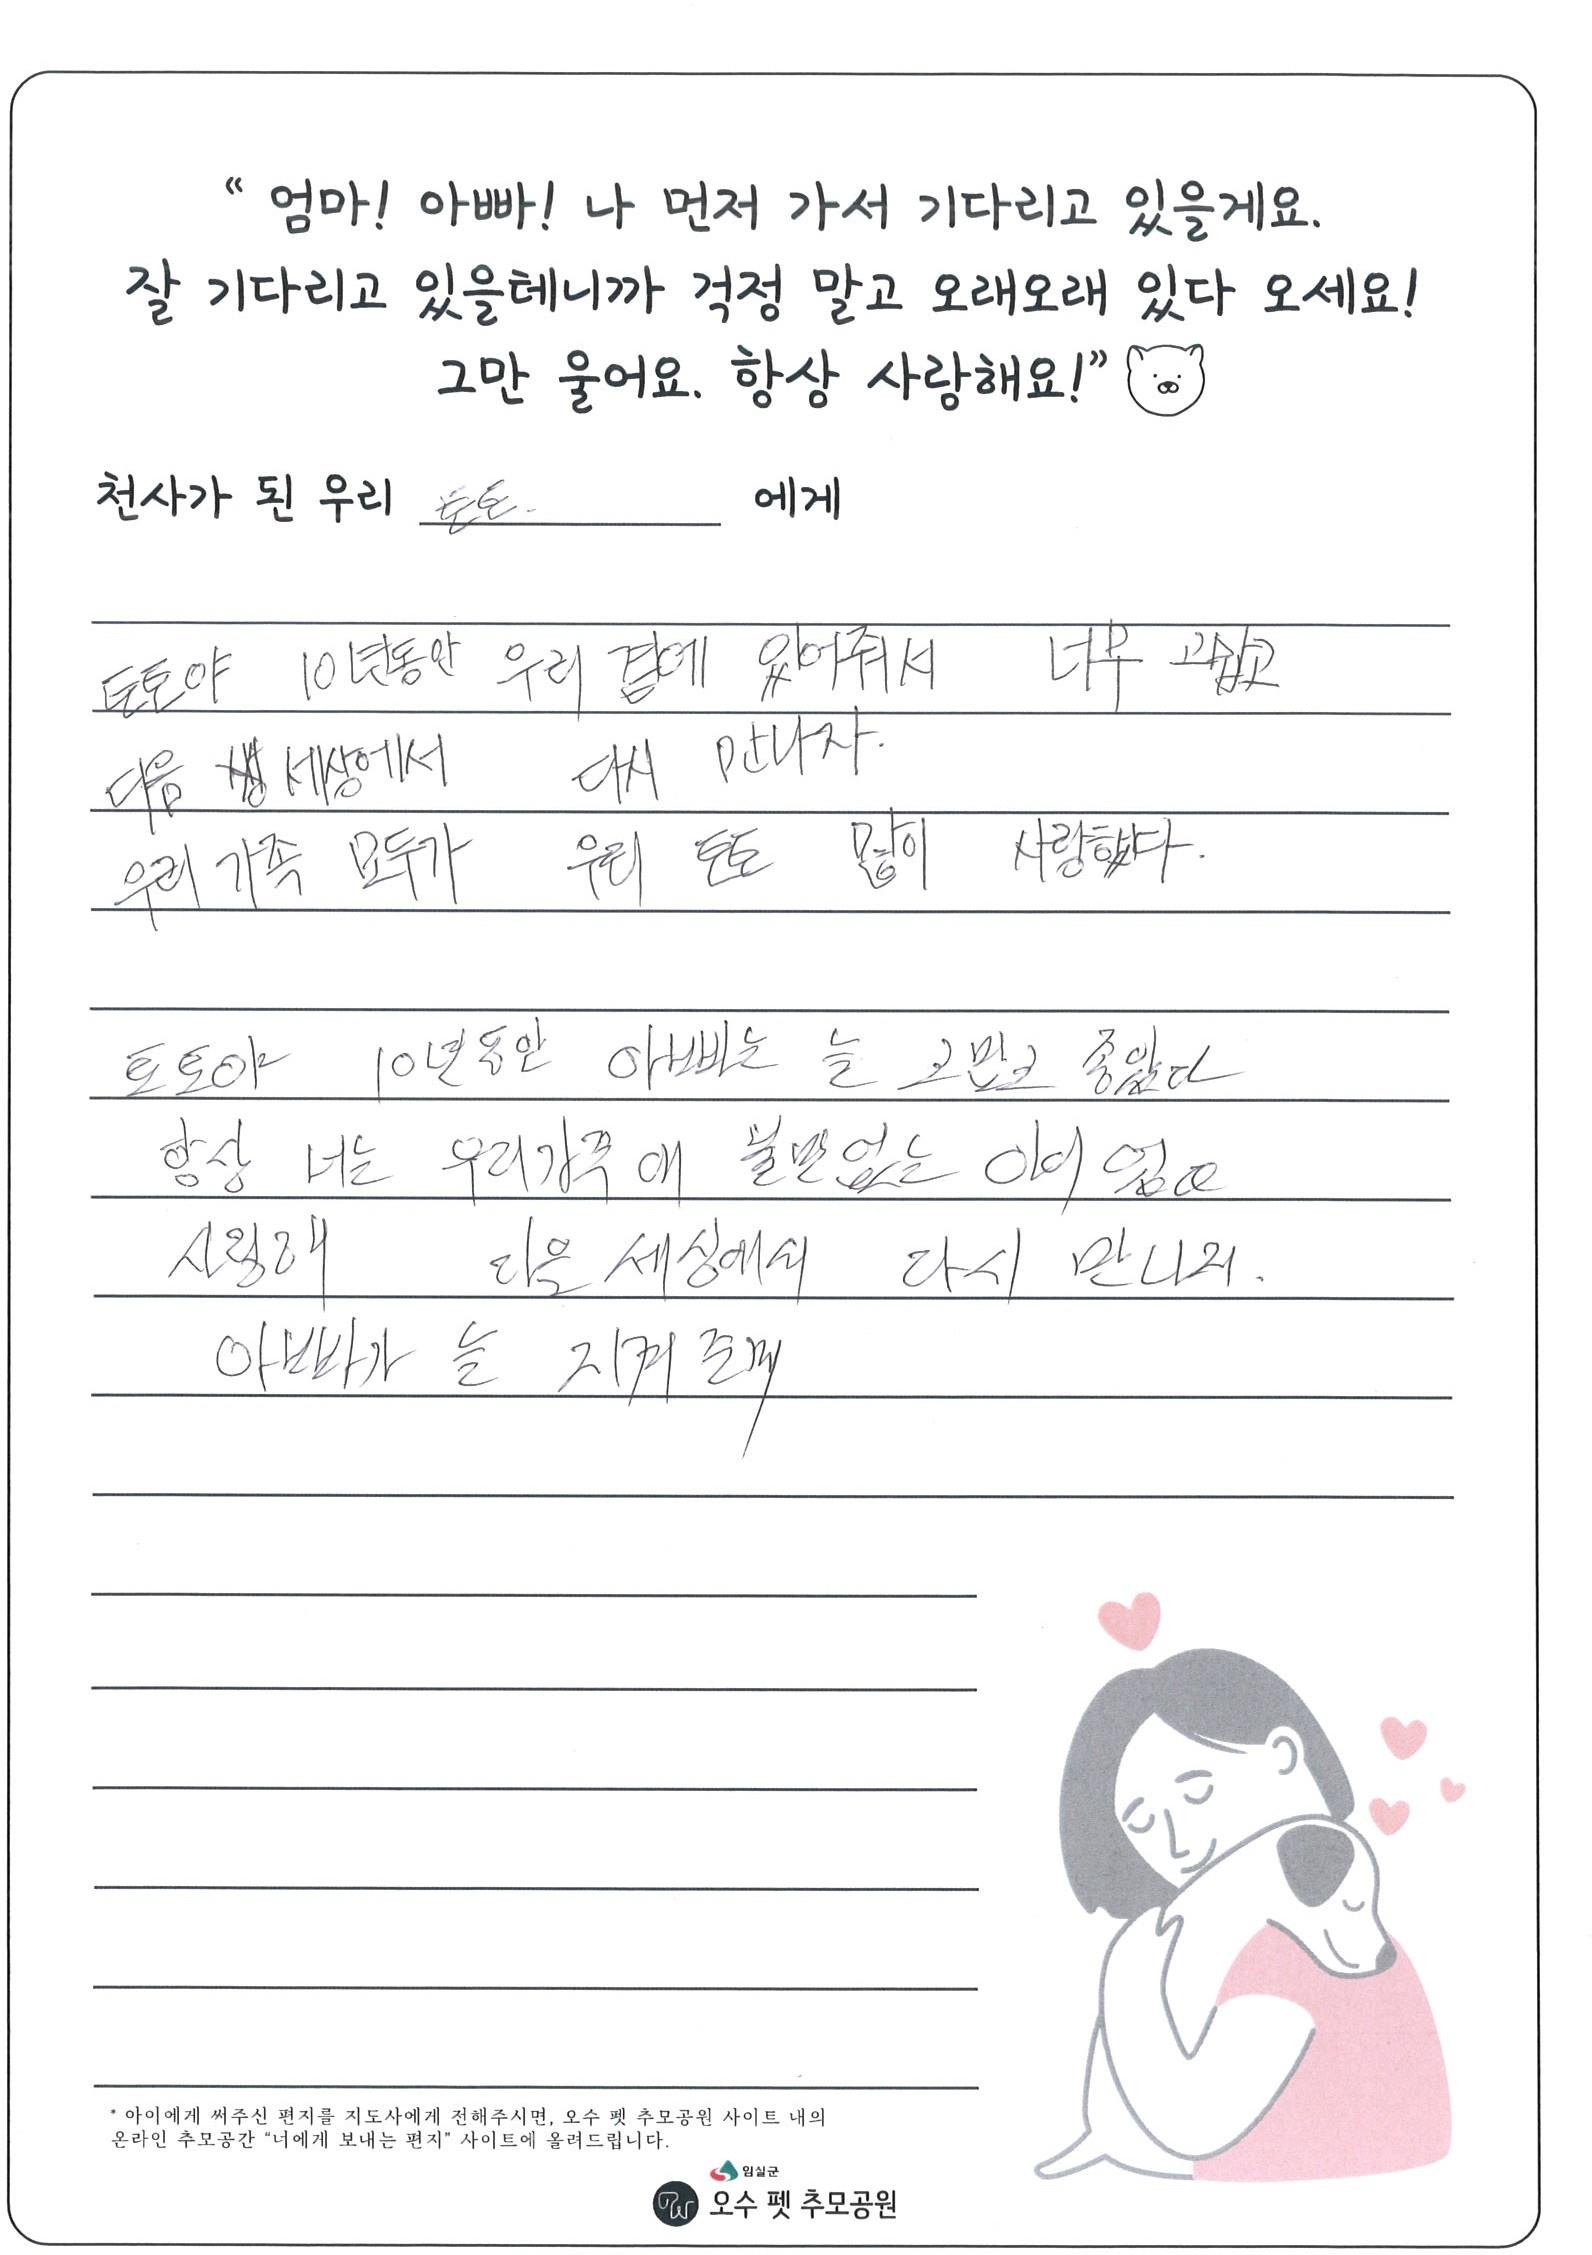 “ 엄마! 아빠! 나 먼저 가서 기다리고 있을게요.
잘 기다리고 있을테니까 걱정 말고 오래오래 있다 오세요!
그만 울어요. 항상 사랑해요!”
천사가 된 우리 토토. 에게
토토야 10년동안 우리 곁에 있어줘서 너무 고맙고
다음 세상에서 다시 만나자.
우리 가족 모두가 우리 토토 많이 사랑했다.
토토야 10년동안 아빠는 늘 고맙고 좋았다
항상 너는 우리가족에 불만없는
사랑해 다음 세상에서 다시 만나자.
아빠가 늘 지켜줄께
* 아이에게 써주신 편지를 지도사에게 전해주시면, 오수 펫 추모공원 사이트 내의
온라인 추모공간 “너에게 보내는 편지” 사이트에 올려드립니다.
임실군
오수 펫 추모공원